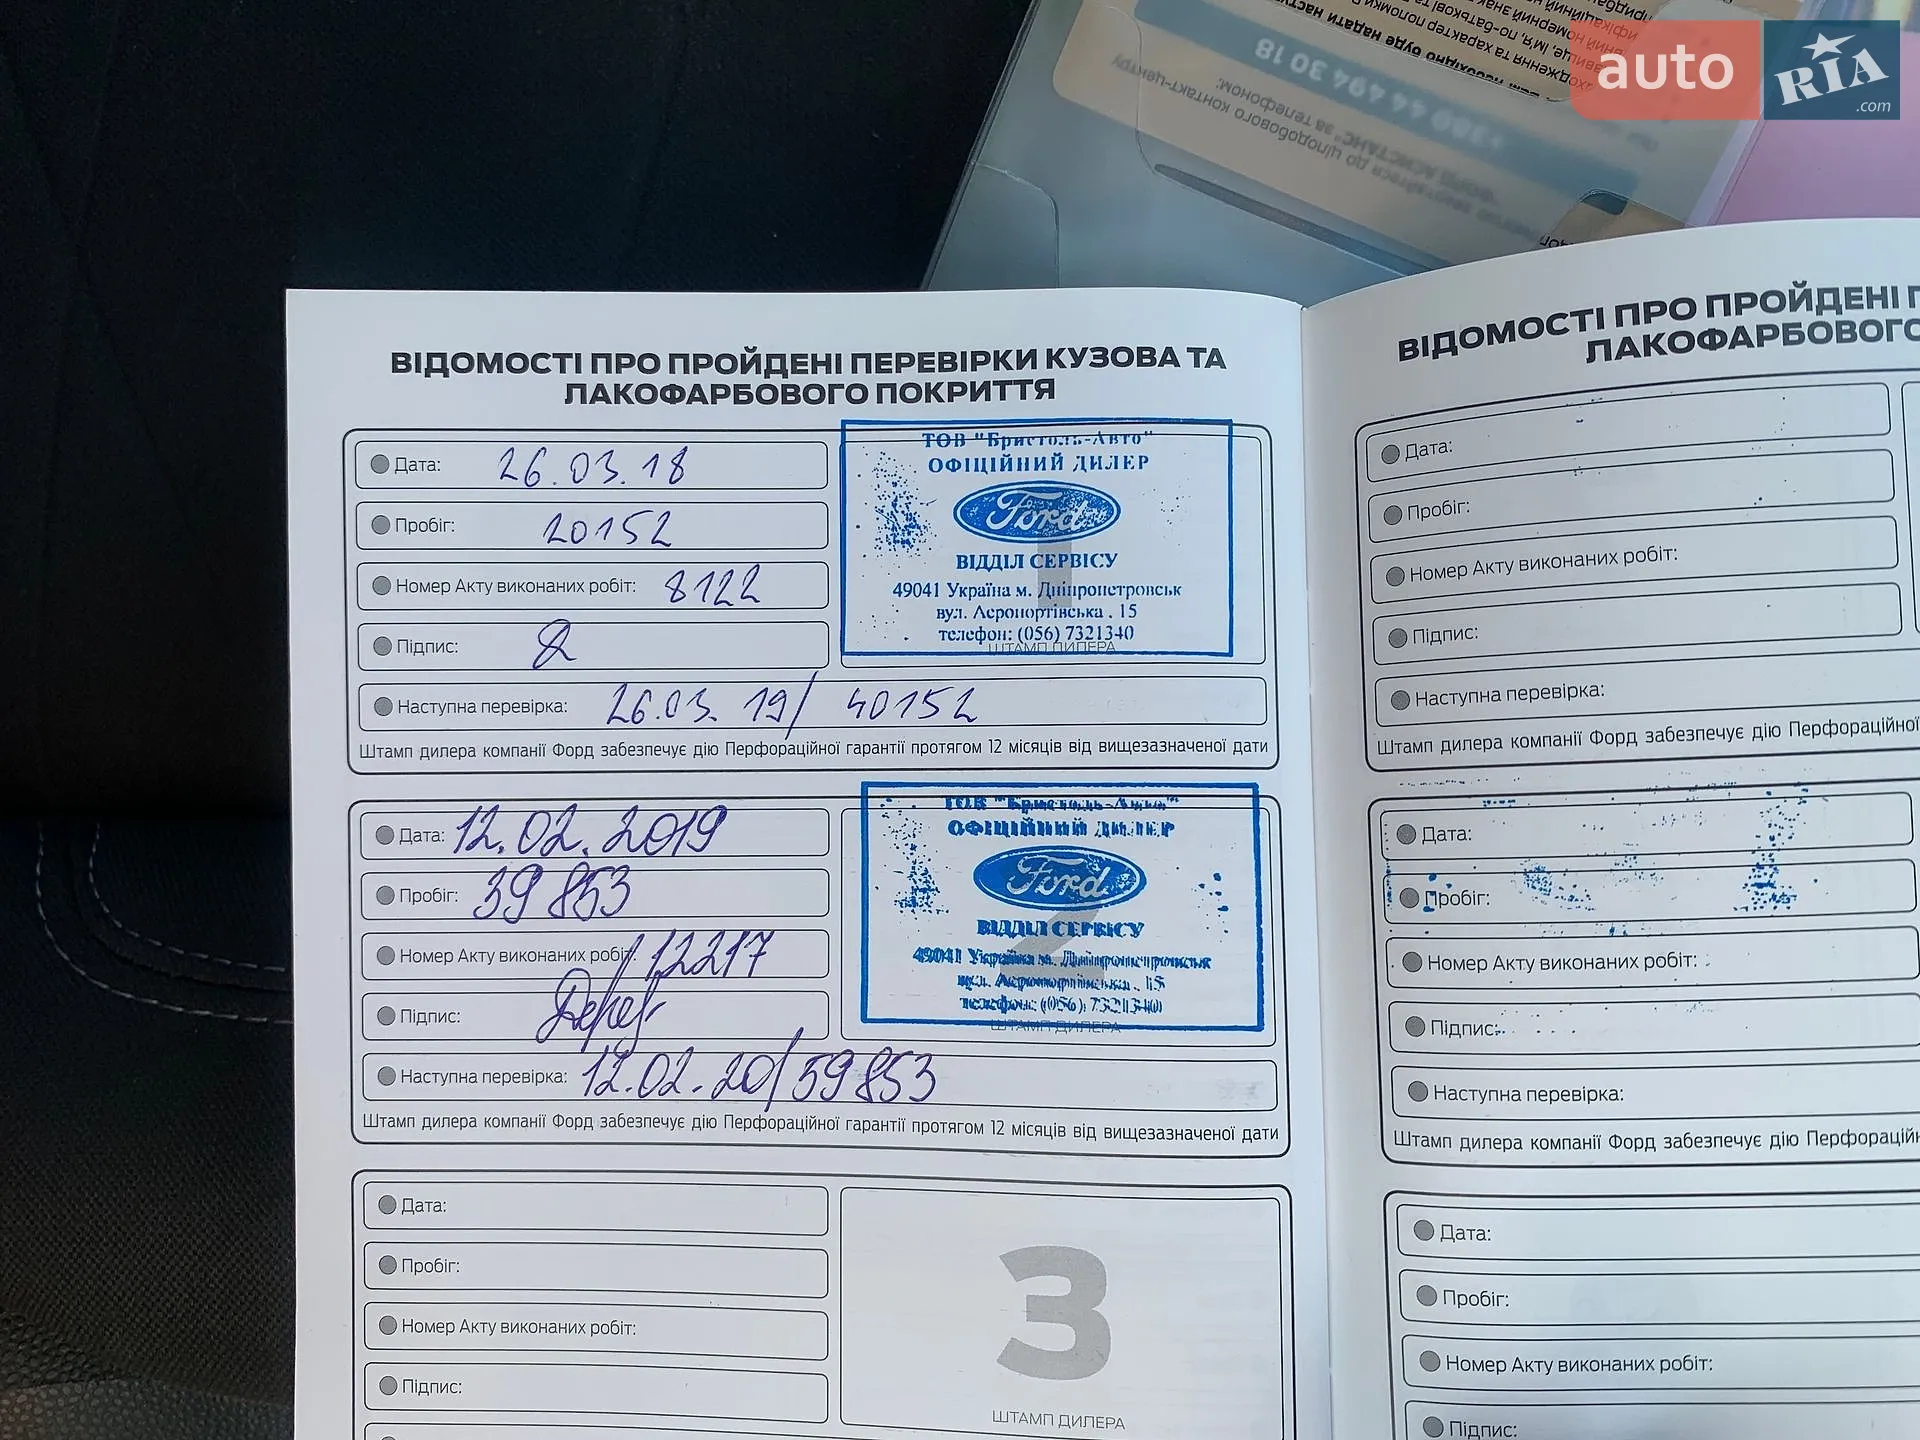 auto
RIA
.com
+380 44 494 30 18
ВІДОМОСТІ ПРО ПРОЙДЕНІ ПЕРЕВІРКИ КУЗОВА ТА
ЛАКОФАРБОВОГО ПОКРИТТЯ
Дата: 26.03.18
Пробіг: 20152
Номер Акту виконаних робіт: 8122
Підпис:
Наступна перевірка: 26.03. 19/ 40152
ТОВ "Бристоль-Авто"
ОФІЦІЙНИЙ ДИЛЕР
Ford
1
ВІДДІЛ СЕРВІСУ
49041 Україна м. Дніпропетровськ
вул. Аеропортівська . 15
телефон: (056) 7321340
ШТАМП ДИЛЕРА
Штамп дилера компанії Форд забезпечує дію Перфораційної гарантії протягом 12 місяців від вищезазначеної дати
Дата: 12.02.2019
Пробіг: 39853
Номер Акту виконаних робіт: 12217
Підпис:
Наступна перевірка: 12.02.20/59853
ТОВ "Бристоль-Авто"
ОФІЦІЙНИЙ ДИЛЕР
Ford
2
ВІДДІЛ СЕРВІСУ
49041 Україна м. Дніпропетровськ
вул. Аеропортівська . 15
телефон: (056) 7321340
ШТАМП ДИЛЕРА
Штамп дилера компанії Форд забезпечує дію Перфораційної гарантії протягом 12 місяців від вищезазначеної дати
Дата:
Пробіг:
Номер Акту виконаних робіт:
Підпис:
3
ШТАМП ДИЛЕРА
ВІДОМОСТІ ПРО ПРОЙДЕНІ
ЛАКОФАРБОВОГО
Дата:
Пробіг:
Номер Акту виконаних робіт:
Підпис:
Наступна перевірка:
Штамп дилера компанії Форд забезпечує дію Перфораційної
Дата:
Пробіг:
Номер Акту виконаних робіт:
Підпис:
Наступна перевірка:
Штамп дилера компанії Форд забезпечує дію
Дата:
Пробіг:
Номер Акту виконаних робіт:
Підпис: